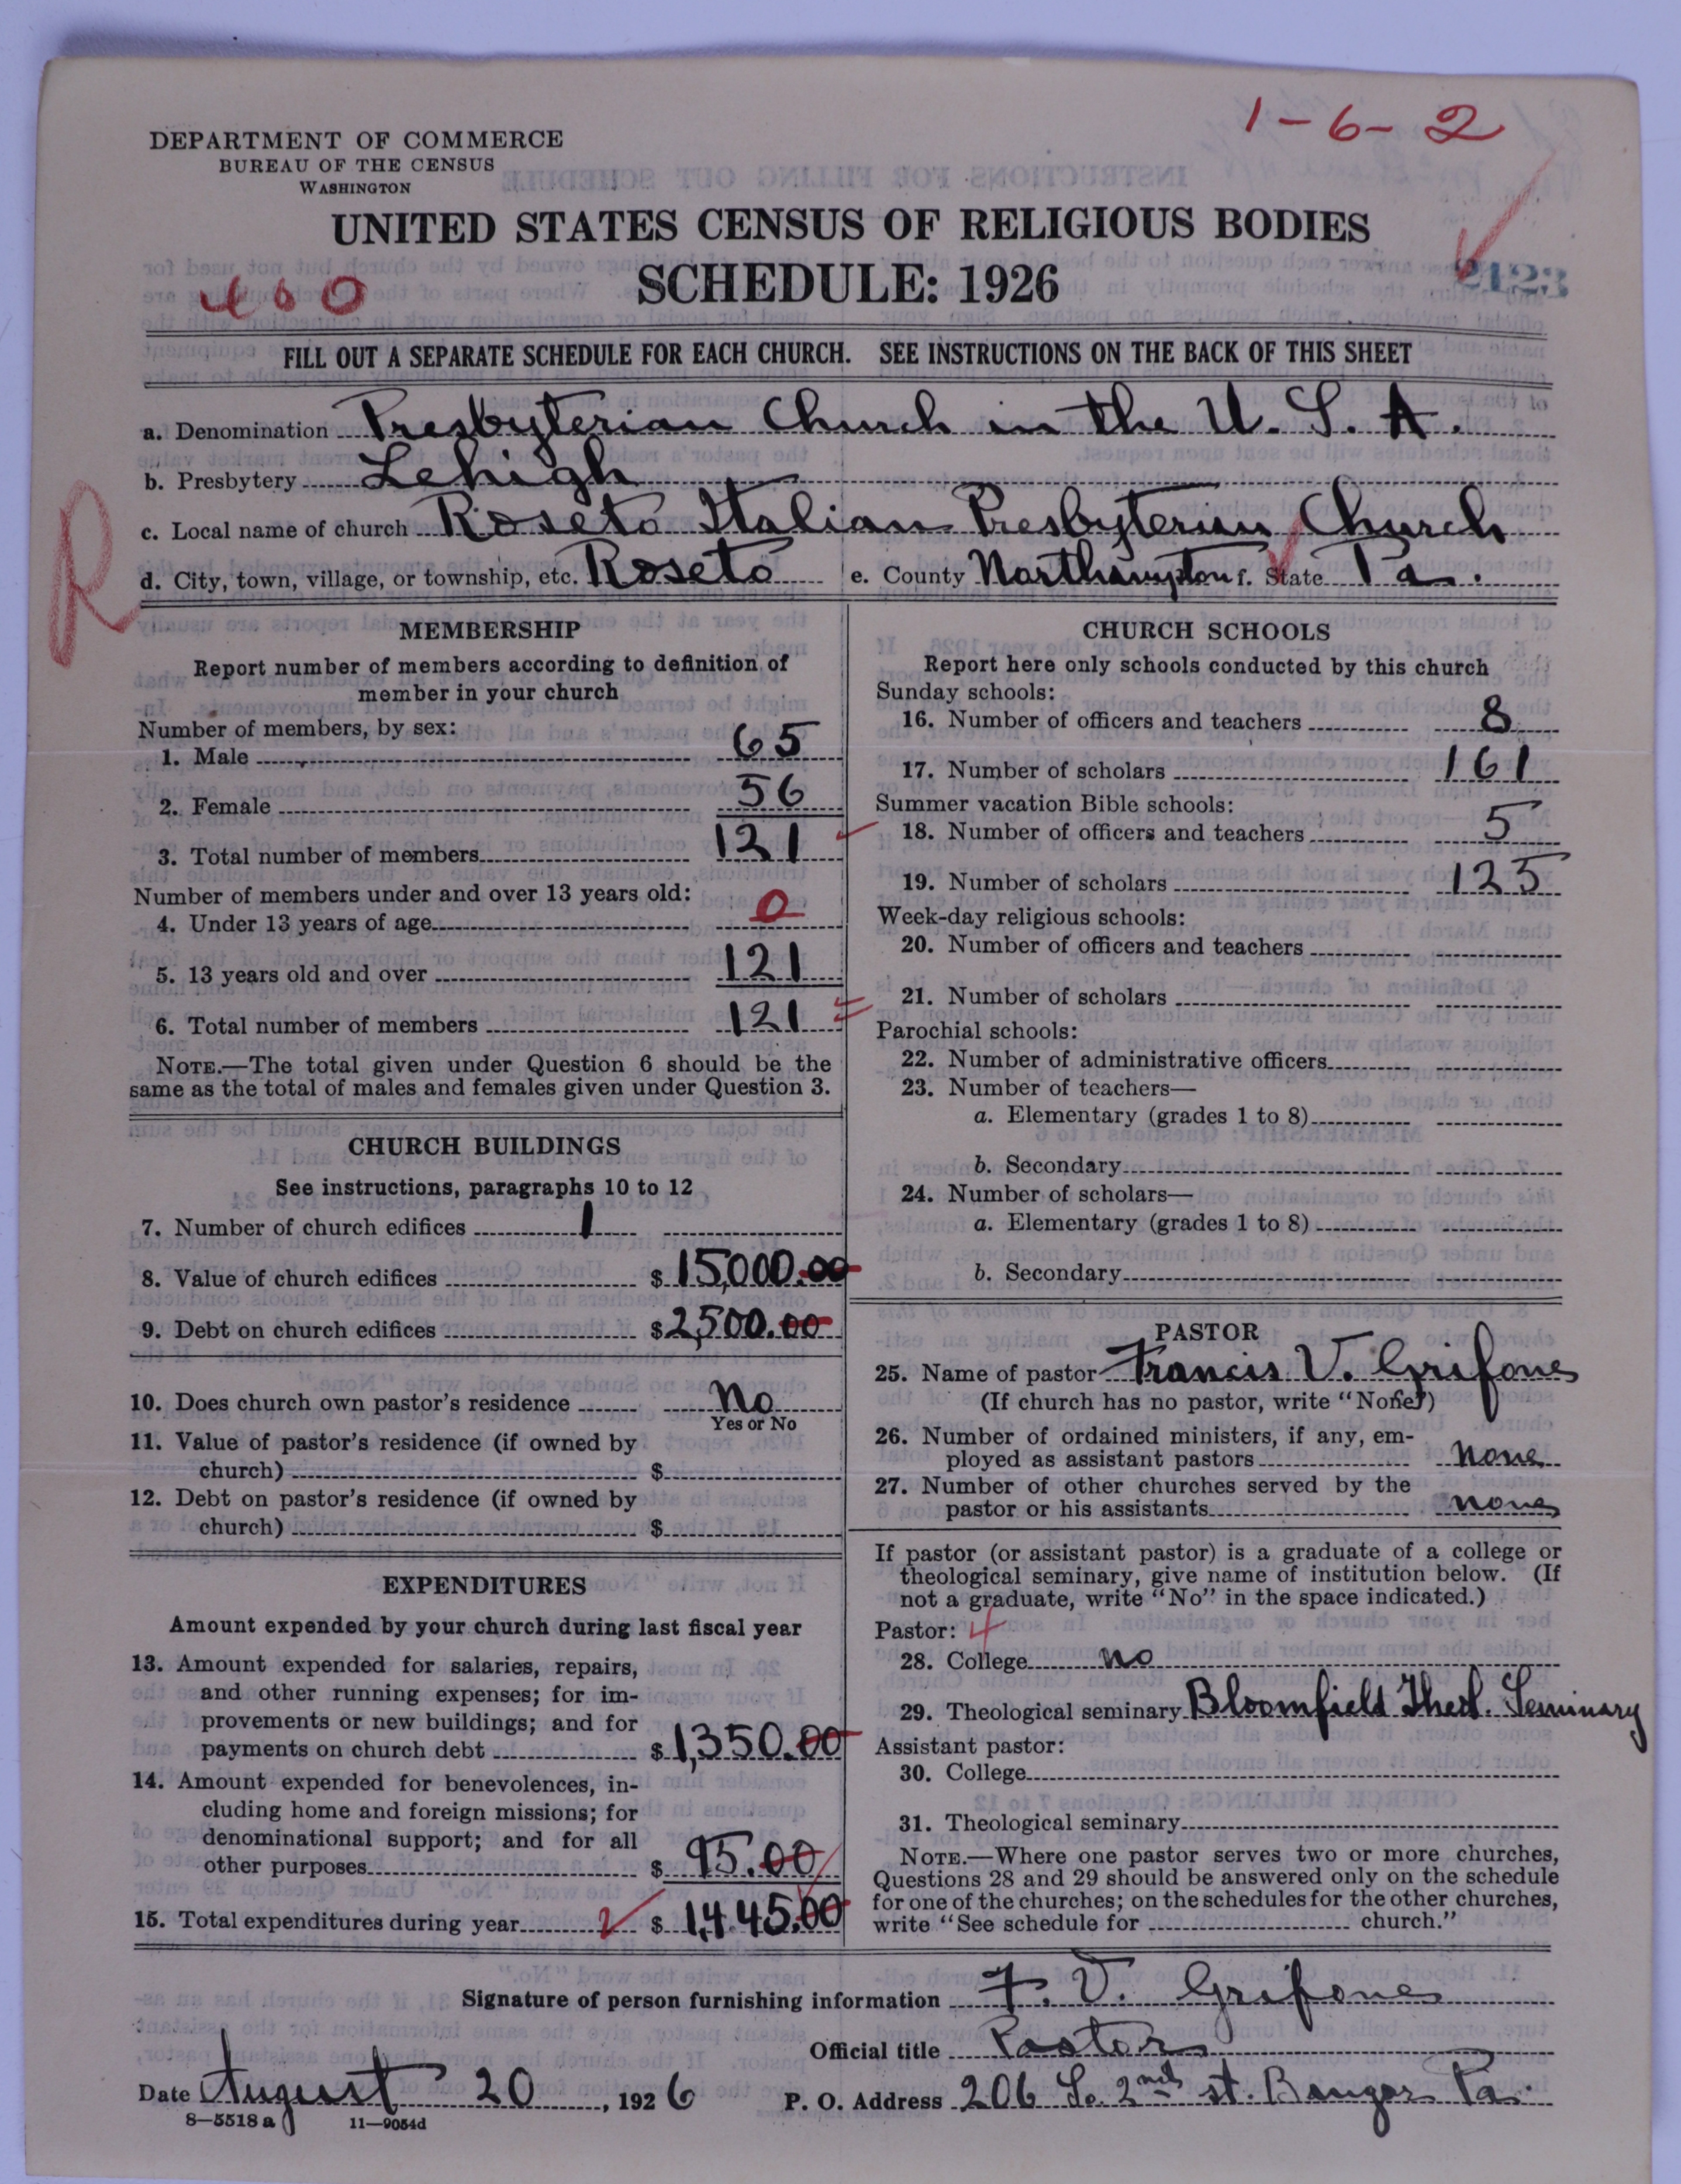 1-6-2
DEPARTMENT OF COMMERCE
BUREAU OF THE CENSUS
WASHINGTON
UNITED STATES CENSUS OF RELIGIOUS BODIES
SCHEDULE: 1926
2123
FILL OUT A SEPARATE SCHEDULE FOR EACH CHURCH. SEE INSTRUCTIONS ON THE BACK OF THIS SHEET
a. Denomination Presbyterian Church in the U.S.A.
b. Presbytery Lehigh
c. Local name of church Roseto Italian Presbyterian Church
R
d. City, town, village, or township, etc. Roseto e. County Northampton f. State Pa.
MEMBERSHIP
Report number of members according to definition of
member in your church
Number of members, by sex:
1. Male 65
2. Female 56
3. Total number of members 121
Number of members under and over 13 years old:
4. Under 13 years of age 0
5. 13 years old and over 121
6. Total number of members 121
NOTE.—The total given under Question 6 should be the
same as the total of males and females given under Question 3.
CHURCH BUILDINGS
See instructions, paragraphs 10 to 12
7. Number of church edifices 1
8. Value of church edifices $15,000.00
9. Debt on church edifices $2,500.00
10. Does church own pastor's residence No
Yes or No
11. Value of pastor's residence (if owned by
church) $
12. Debt on pastor's residence (if owned by
church) $
EXPENDITURES
Amount expended by your church during last fiscal year
13. Amount expended for salaries, repairs,
and other running expenses; for im-
provements or new buildings; and for
payments on church debt $1,350.00
14. Amount expended for benevolences, in-
cluding home and foreign missions; for
denominational support; and for all
other purposes $95.00
15. Total expenditures during year $1,445.00
CHURCH SCHOOLS
Report here only schools conducted by this church
Sunday schools:
16. Number of officers and teachers 8
17. Number of scholars 161
Summer vacation Bible schools:
18. Number of officers and teachers 5
19. Number of scholars 125
Week-day religious schools:
20. Number of officers and teachers
21. Number of scholars
Parochial schools:
22. Number of administrative officers
23. Number of teachers—
a. Elementary (grades 1 to 8)
b. Secondary
24. Number of scholars—
a. Elementary (grades 1 to 8)
b. Secondary
PASTOR
25. Name of pastor Francis V. Grifone
(If church has no pastor, write "None")
26. Number of ordained ministers, if any, em-
ployed as assistant pastors none
27. Number of other churches served by the
pastor or his assistants none
If pastor (or assistant pastor) is a graduate of a college or
theological seminary, give name of institution below. (If
not a graduate, write "No" in the space indicated.)
Pastor: 4
28. College no
29. Theological seminary Bloomfield Theol. Seminary
Assistant pastor:
30. College
31. Theological seminary
NOTE.—Where one pastor serves two or more churches,
Questions 28 and 29 should be answered only on the schedule
for one of the churches; on the schedules for the other churches,
write "See schedule for church."
Signature of person furnishing information F. V. Grifone
Official title Pastor
Date August 20, 1926 P. O. Address 206 So. 2nd st. Bangor Pa.
8—5518a 11—9054d